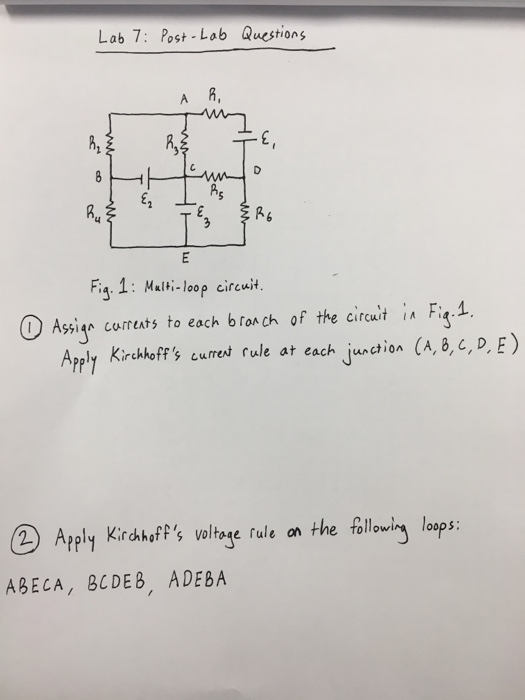 Lab 7: Post-Lab Questions
A R₁
R₂ R₃ ε₁
B C D
ε₂ R₅
R₄ ε₃ R₆
E
Fig. 1: Multi-loop circuit.
① Assign currents to each branch of the circuit in Fig. 1.
Apply Kirchhoff's current rule at each junction (A, B, C, D, E)
② Apply Kirchhoff's voltage rule on the following loops:
ABECA, BCDEB, ADEBA